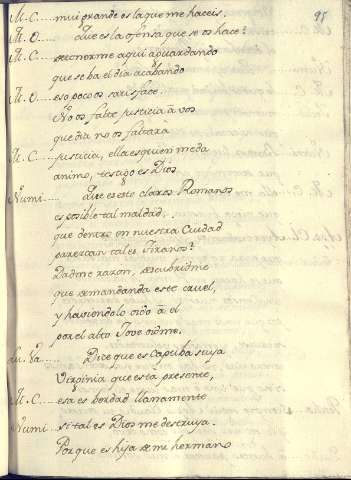 95
M. C. .... mui grande es la que me haceis.
M. O. .... Que es la ofensa que se os hace?
M. C. .... detenerme aqui aguardando
que se ba el dia acabando
M. O. .... eso poco os satisface.
No os falte justicia à vos
que dia no os faltarà
M. C. .... justicia, ella es quien me da
animo, testigo es Dios.
Numi .... Que es esto claros Romanos
es posible tal maldad,
que dentro en nuestra Ciudad
parezcan tales Tiranos?
Dadme razon, descubridme
que demandanda este cruel,
y haviendolo oido à el
por el alto Jove oidme.
Lu. Va. .... Dice que es Captiba suya
Virginia que esta presente,
M. C. .... esa es berdad llanamente
Numi .... si tal es Dios me destruya.
Porque es hija de mi hermano